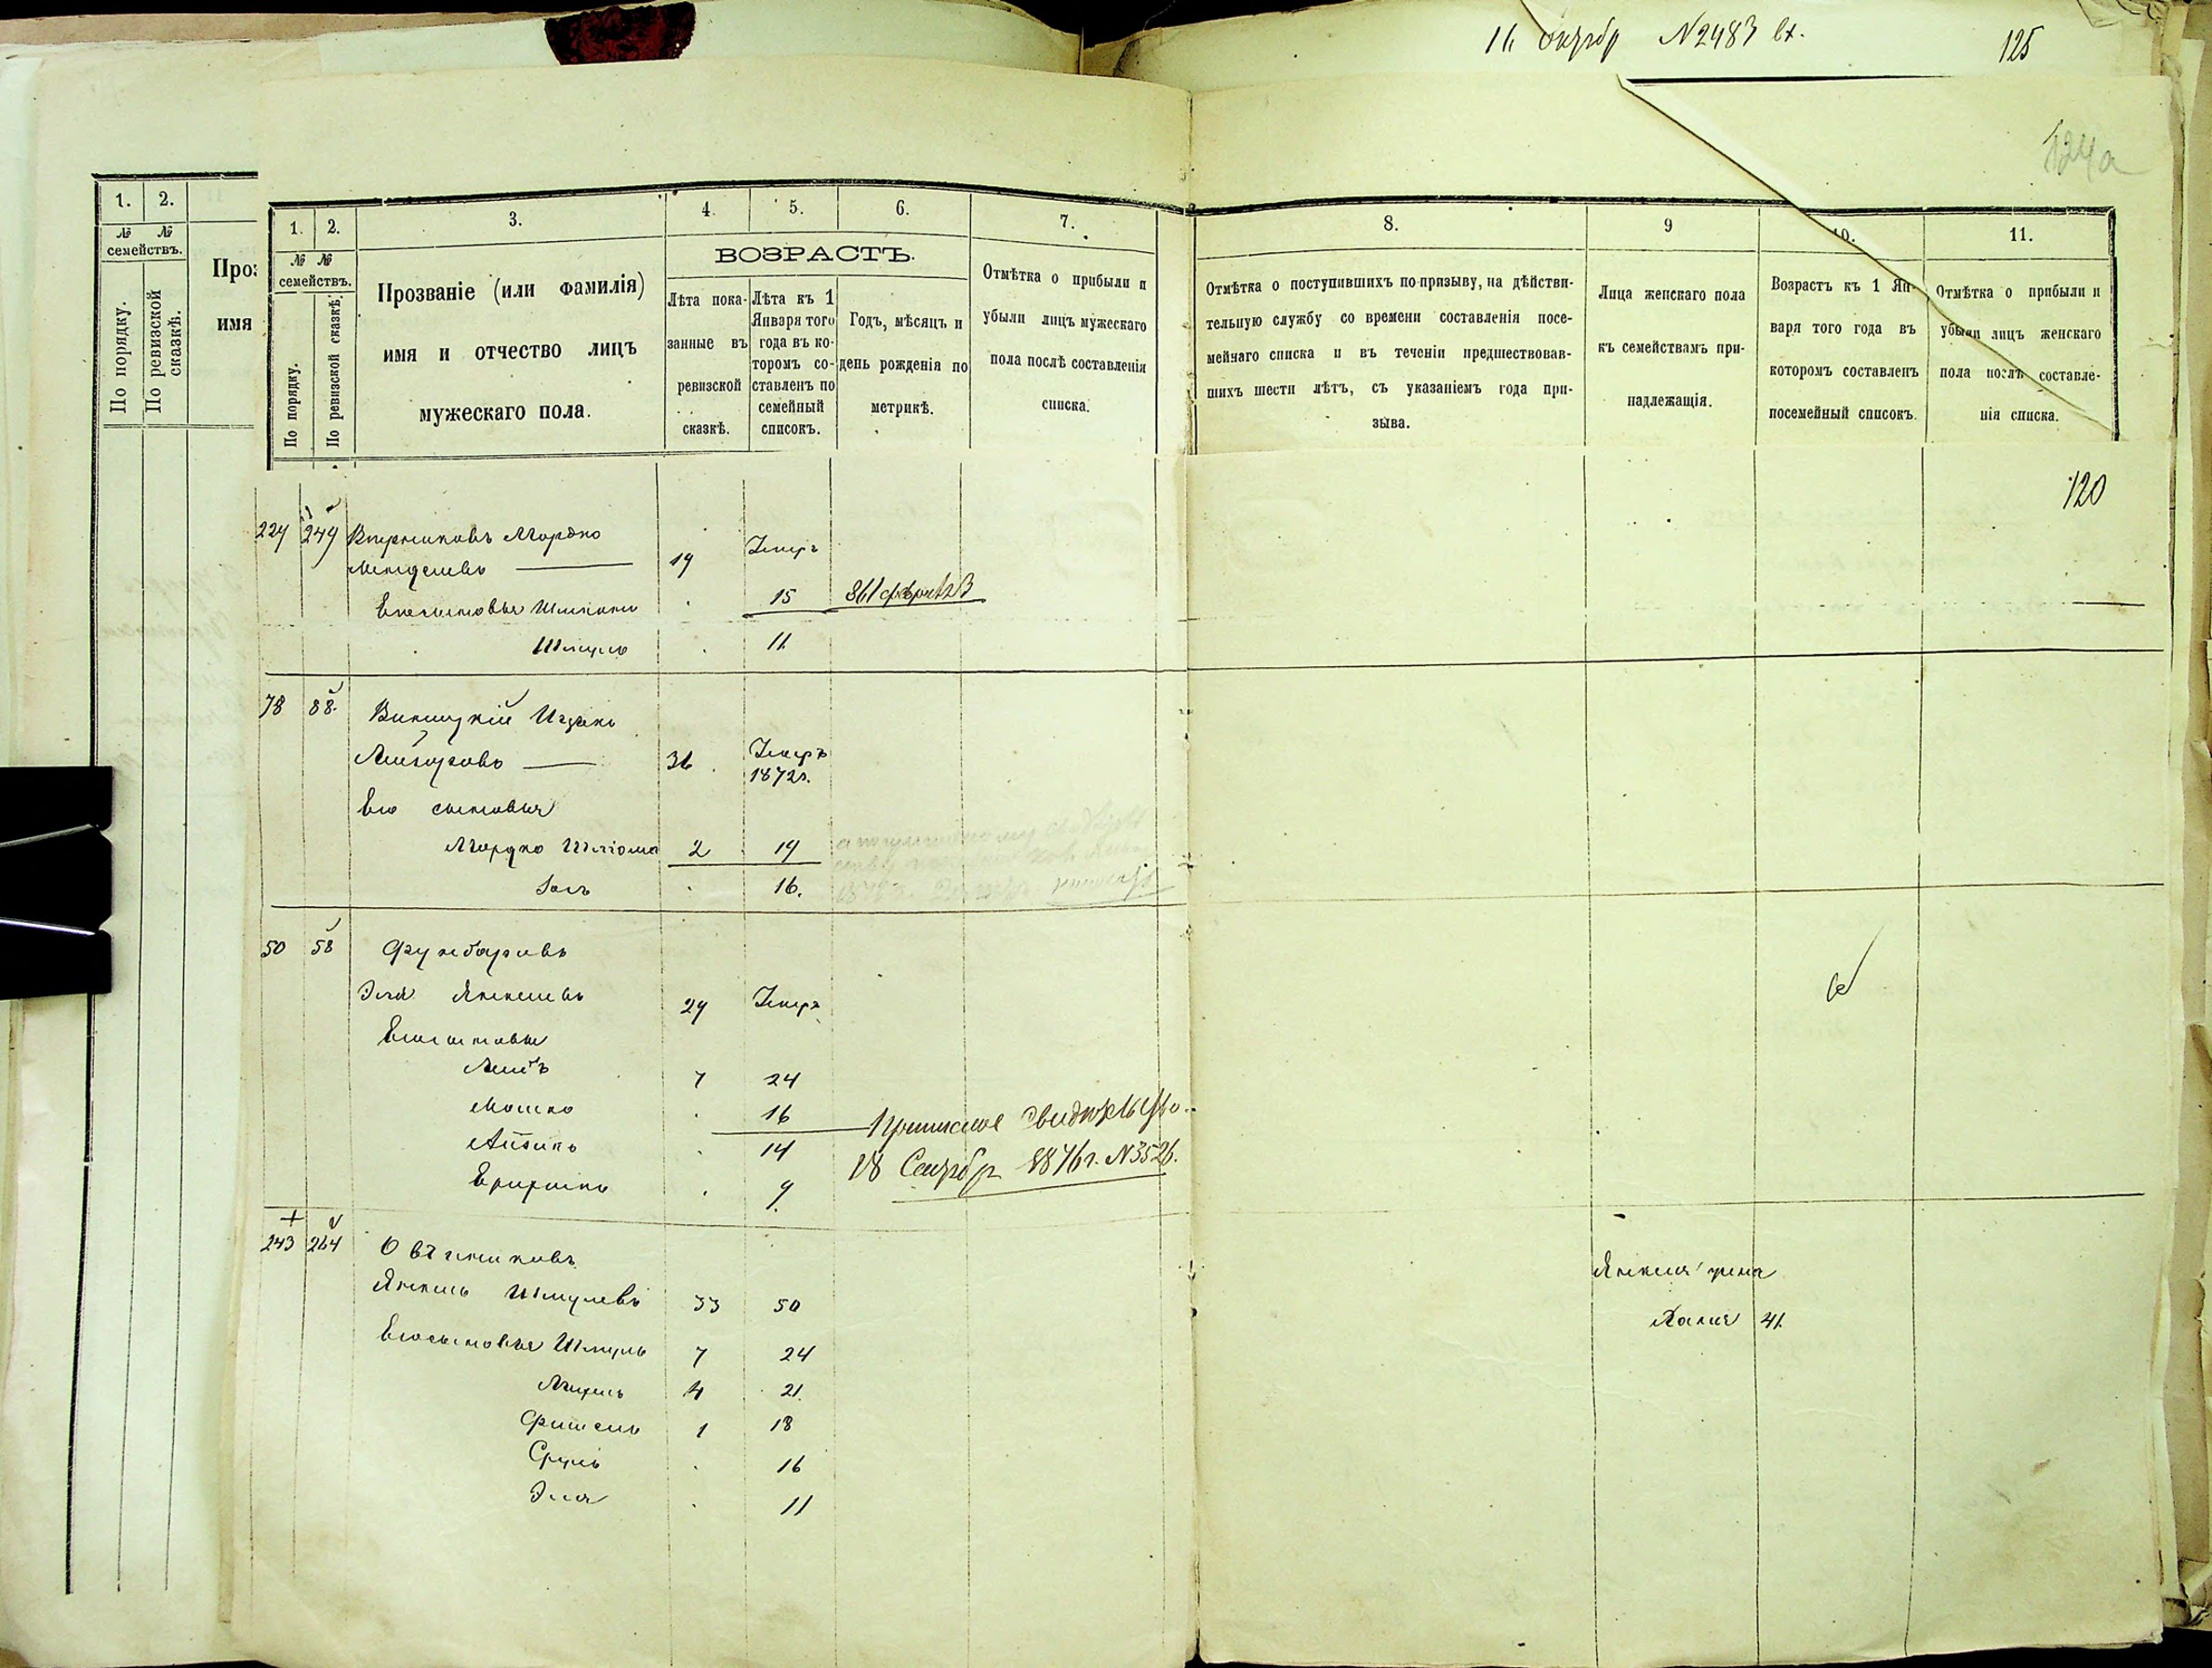 11 октябр N 2483 вх.
125
124а
1. 2.
№ №
семействъ.
По порядку.
По ревизской сказкѣ.
Проз
имя
1. 2. 3. 4. 5. 6. 7. 8. 9 10. 11.
№ №
семействъ.
По порядку.
По ревизской сказкѣ.
Прозваніе (или фамилія)
имя и отчество лицъ
мужескаго пола.
ВОЗРАСТЪ.
Лѣта пока-
занные въ
ревизской
сказкѣ.
Лѣта къ 1
Января того
года въ ко-
торомъ со-
ставленъ по
семейный
списокъ.
Годъ, мѣсяцъ и
день рожденія по
метрикѣ.
Отмѣтка о прибыли и
убыли лицъ мужескаго
пола послѣ составленія
списка.
Отмѣтка о поступившихъ по призыву, на дѣйстви-
тельную службу со времени составленія посе-
мейнаго списка и въ теченіи предшествовав-
шихъ шести лѣтъ, съ указаніемъ года при-
зыва.
Лица женскаго пола
къ семействамъ при-
надлежащія.
Возрастъ къ 1 Ян-
варя того года въ
которомъ составленъ
посемейный списокъ.
Отмѣтка о прибыли и
убыли лицъ женскаго
пола послѣ составле-
нія списка.
120
224 249 Мордко
19 Умеръ
Его сыновья 15 861
Шмуль 11
78 88. Виницкій Ицко
36 Умеръ
1872г.
Его сыновья
Мордко Шліома 2 19
16.
50 58
Эля Янкелевъ 29 Умеръ
Его сыновья
Лейбъ 7 24
Мошко 16 Приписное свидѣтельство
Айзикъ 14 18 Сентябр 1876г. N 3526.
9.
243 264 Овчинниковъ
Янкель Шмулевъ 33 50 Янкеля жена
Хання 41.
Его сыновья Шмуль 7 24
4 21.
Фишель 1 18
Сруль 16
Эля 11